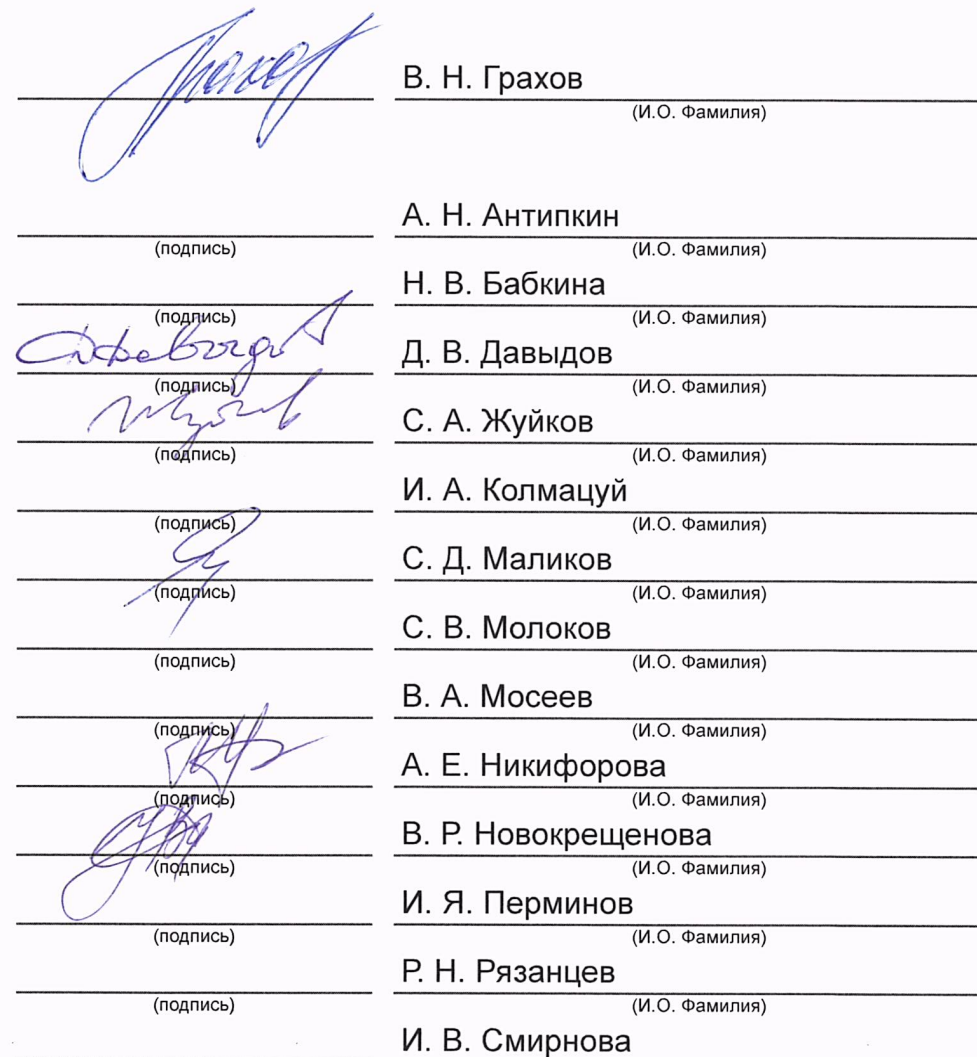 В. Н. Грахов
(И.О. Фамилия)
А. Н. Антипкин
(подпись) (И.О. Фамилия)
Н. В. Бабкина
(подпись) (И.О. Фамилия)
Д. В. Давыдов
(подпись) (И.О. Фамилия)
С. А. Жуйков
(подпись) (И.О. Фамилия)
И. А. Колмацуй
(подпись) (И.О. Фамилия)
С. Д. Маликов
(подпись) (И.О. Фамилия)
С. В. Молоков
(подпись) (И.О. Фамилия)
В. А. Мосеев
(подпись) (И.О. Фамилия)
А. Е. Никифорова
(подпись) (И.О. Фамилия)
В. Р. Новокрещенова
(подпись) (И.О. Фамилия)
И. Я. Перминов
(подпись) (И.О. Фамилия)
Р. Н. Рязанцев
(подпись) (И.О. Фамилия)
И. В. Смирнова